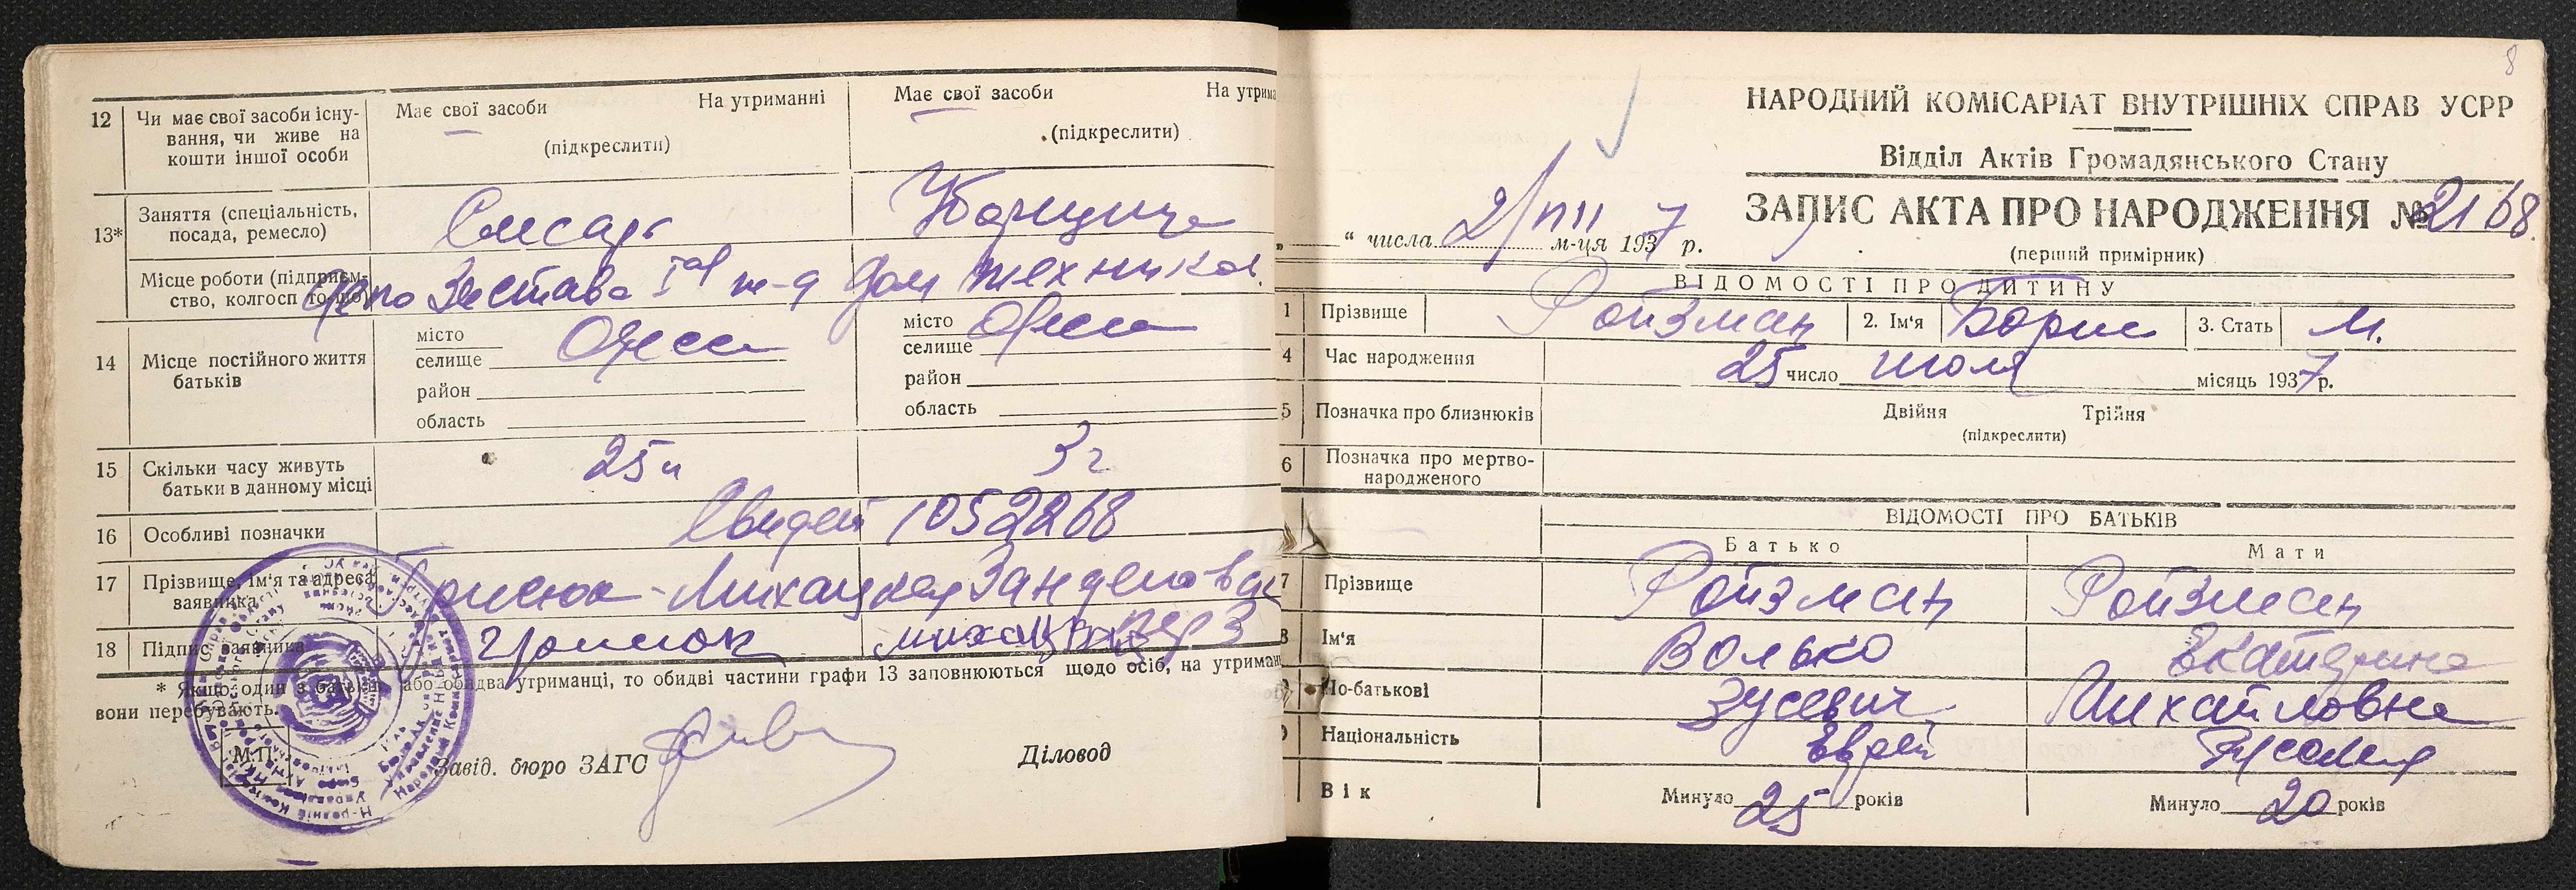 12 Чи має свої засоби існу-
вання, чи живе на
кошти іншої особи
Має свої засоби На утриманні
(підкреслити)
Має свої засоби На утрима
(підкреслити)
13* Заняття (спеціальність,
посада, ремесло)
Слесарь
Уборщица
Місце роботи (підприєм-
ство, колгосп то-що)
Депо Застава Iая
Дом техники
14 Місце постійного життя
батьків
місто
селище Одесса
район
область
місто Одесса
селище
район
область
15 Скільки часу живуть
батьки в данному місці
25 л
3 г
16 Особливі позначки
Свидет 1052268
17 Прізвище, ім'я та адреса
заявника
18 Підпис заявника
* Якщо один з батьків або обидва утриманці, то обидві частини графи 13 заповнюються щодо осіб, на утриман
вони перебувають.
М.П.
Завід. бюро ЗАГС Діловод
8
НАРОДНИЙ КОМІСАРІАТ ВНУТРІШНІХ СПРАВ УСРР
Відділ Актів Громадянського Стану
ЗАПИС АКТА ПРО НАРОДЖЕННЯ № 2168.
(перший примірник)
„ “ числа 2/VIII м-ця 1937 р.
ВІДОМОСТІ ПРО ДИТИНУ
1 Прізвище Ройзман 2. Ім'я Борис 3. Стать М.
4 Час народження 25 число июля місяць 1937 р.
5 Позначка про близнюків Двійня Трійня
(підкреслити)
6 Позначка про мертво-
народженого
ВІДОМОСТІ ПРО БАТЬКІВ
Батько Мати
7 Прізвище Ройзман Ройзман
8 Ім'я Волько Екатерина
По-батькові Зусевич Михайловна
Національність Еврей Русская
Вік Минуло 25 років Минуло 20 років